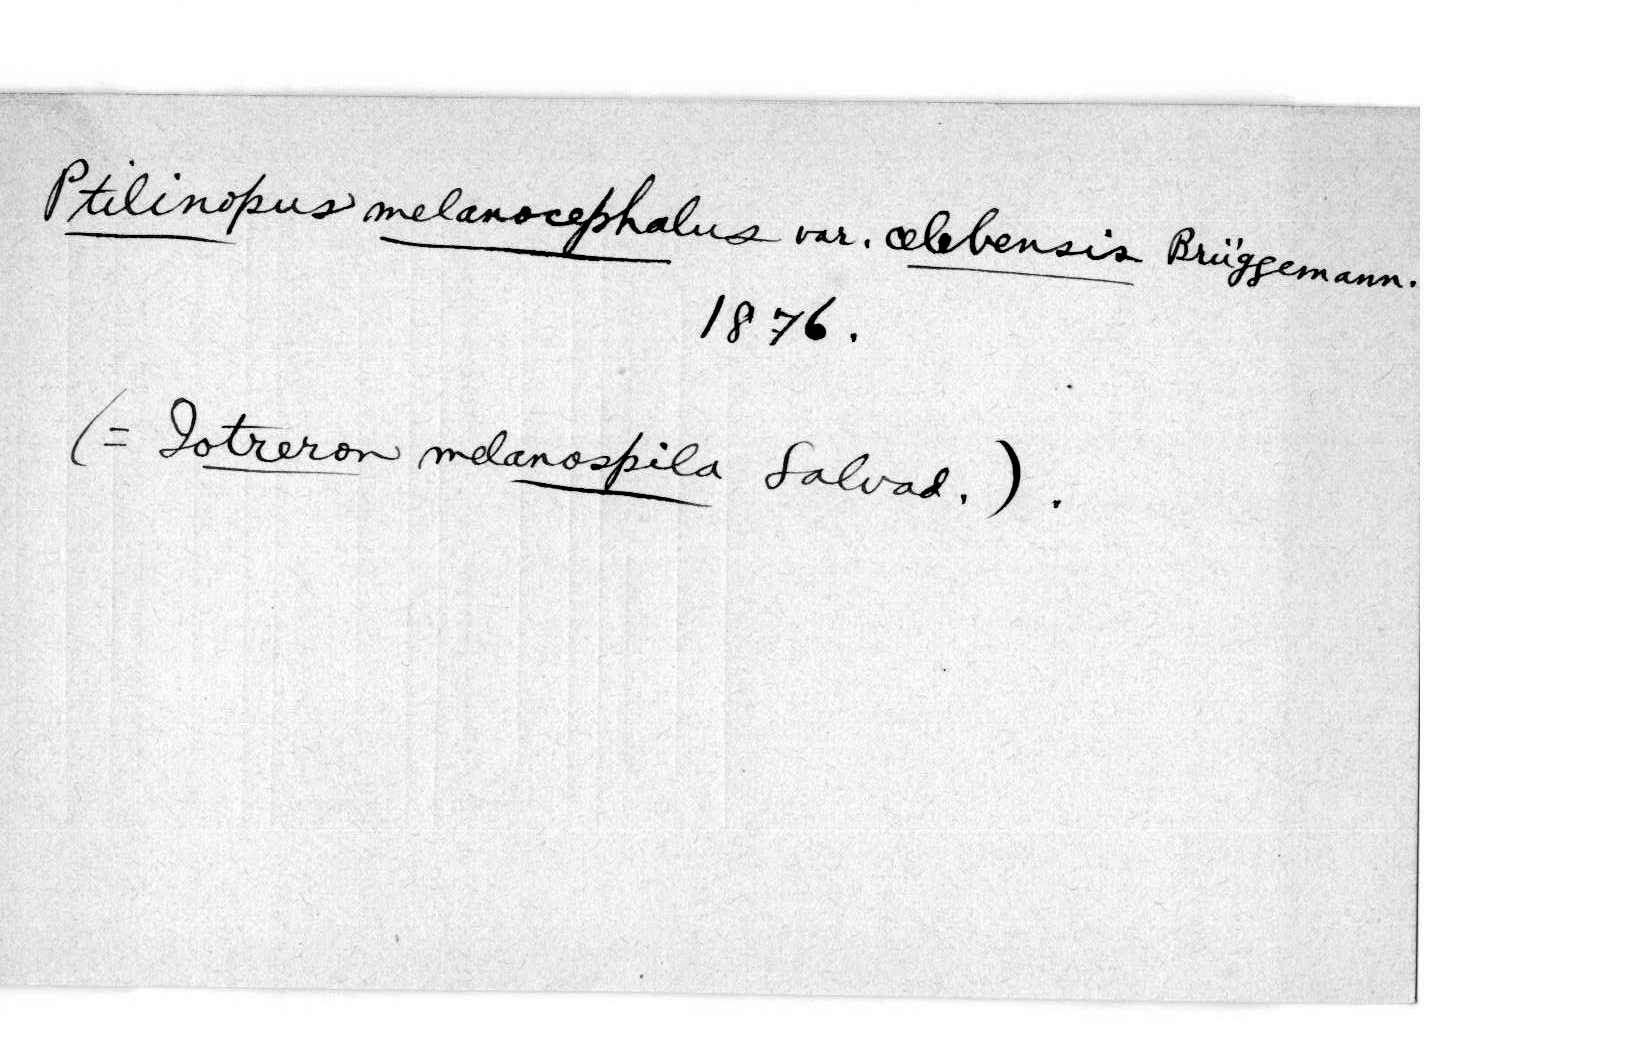 Ptilinopus melanocephalus var. celebensis Brüggemann.
1876.
(= Iotreron melanospila Salvad.).